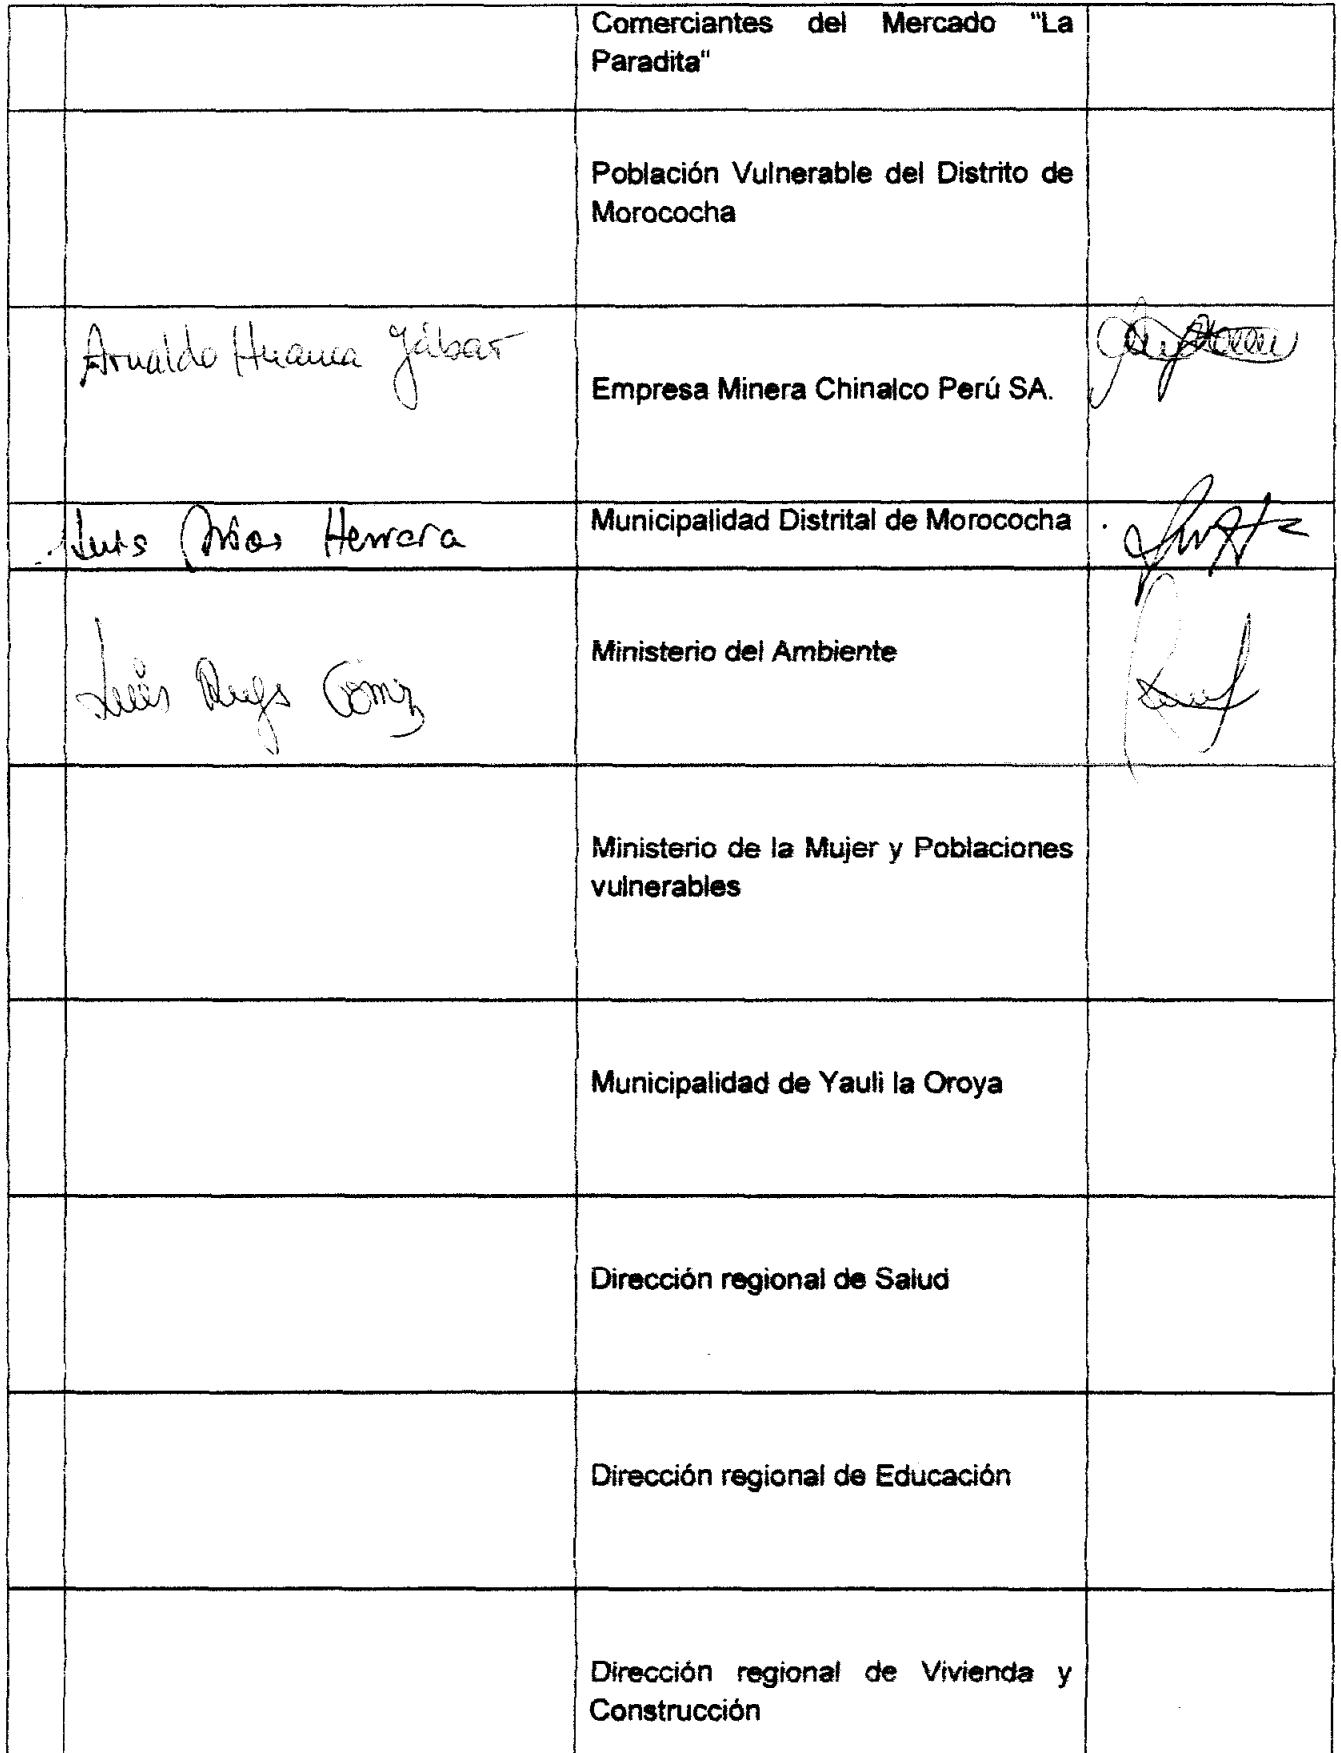 Comerciantes del Mercado "La
Paradita"
Población Vulnerable del Distrito de
Morococha
Arnaldo Huama
Empresa Minera Chinalco Perú SA.
Luis Herrera
Municipalidad Distrital de Morococha
Luis
Ministerio del Ambiente
Ministerio de la Mujer y Poblaciones
vulnerables
Municipalidad de Yauli la Oroya
Dirección regional de Salud
Dirección regional de Educación
Dirección regional de Vivienda y
Construcción